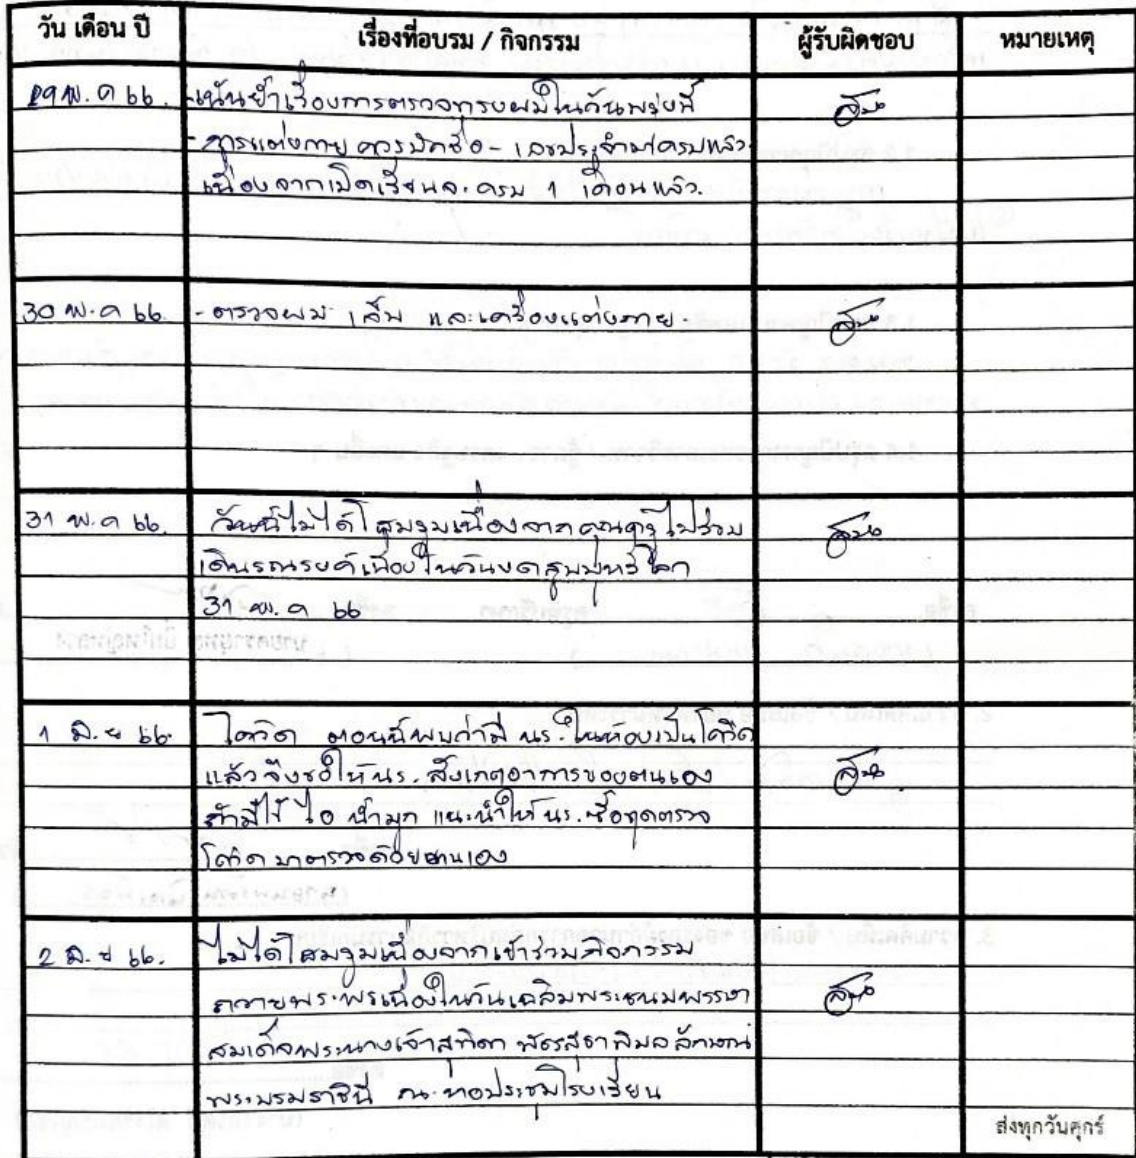 วัน เดือน ปี เรื่องที่อบรม / กิจกรรม ผู้รับผิดชอบ หมายเหตุ
29 พ.ค 66. -เน้นย้ำเรื่องการตรวจทรงผมในวันพรุ่งนี้
- การแต่งกาย ควรปักชื่อ - เลขประจำมาครบแล้ว
เนื่องจากเปิดเรียนจะครบ 1 เดือนแล้ว.
30 พ.ค 66. - ตรวจผม เล็บ และเครื่องแต่งกาย
31 พ.ค 66. วันนี้ไม่ได้โฮมรูมเนื่องจากคุณครูไปร่วม
เดินรณรงค์เนื่องในวันงดสูบบุหรี่โลก
31 พ.ค 66
1 มิ.ย 66. โควิด ตอนนี้พบว่ามี นร. ในห้องเป็นโควิด
แล้ว จึงขอให้ นร. สังเกตอาการของตนเอง
ถ้ามีไข้ ไอ น้ำมูก แนะนำให้ นร. ซื้อชุดตรวจ
โควิด มาตรวจด้วยตนเอง
2 มิ.ย 66. ไม่ได้โฮมรูมเนื่องจากเข้าร่วมกิจกรรม
ถวายพระพรเนื่องในวันเฉลิมพระชนมพรรษา
สมเด็จพระนางเจ้าสุทิดา พัชรสุธาพิมลลักษณ
พระบรมราชินี ณ. หอประชุมโรงเรียน
ส่งทุกวันศุกร์